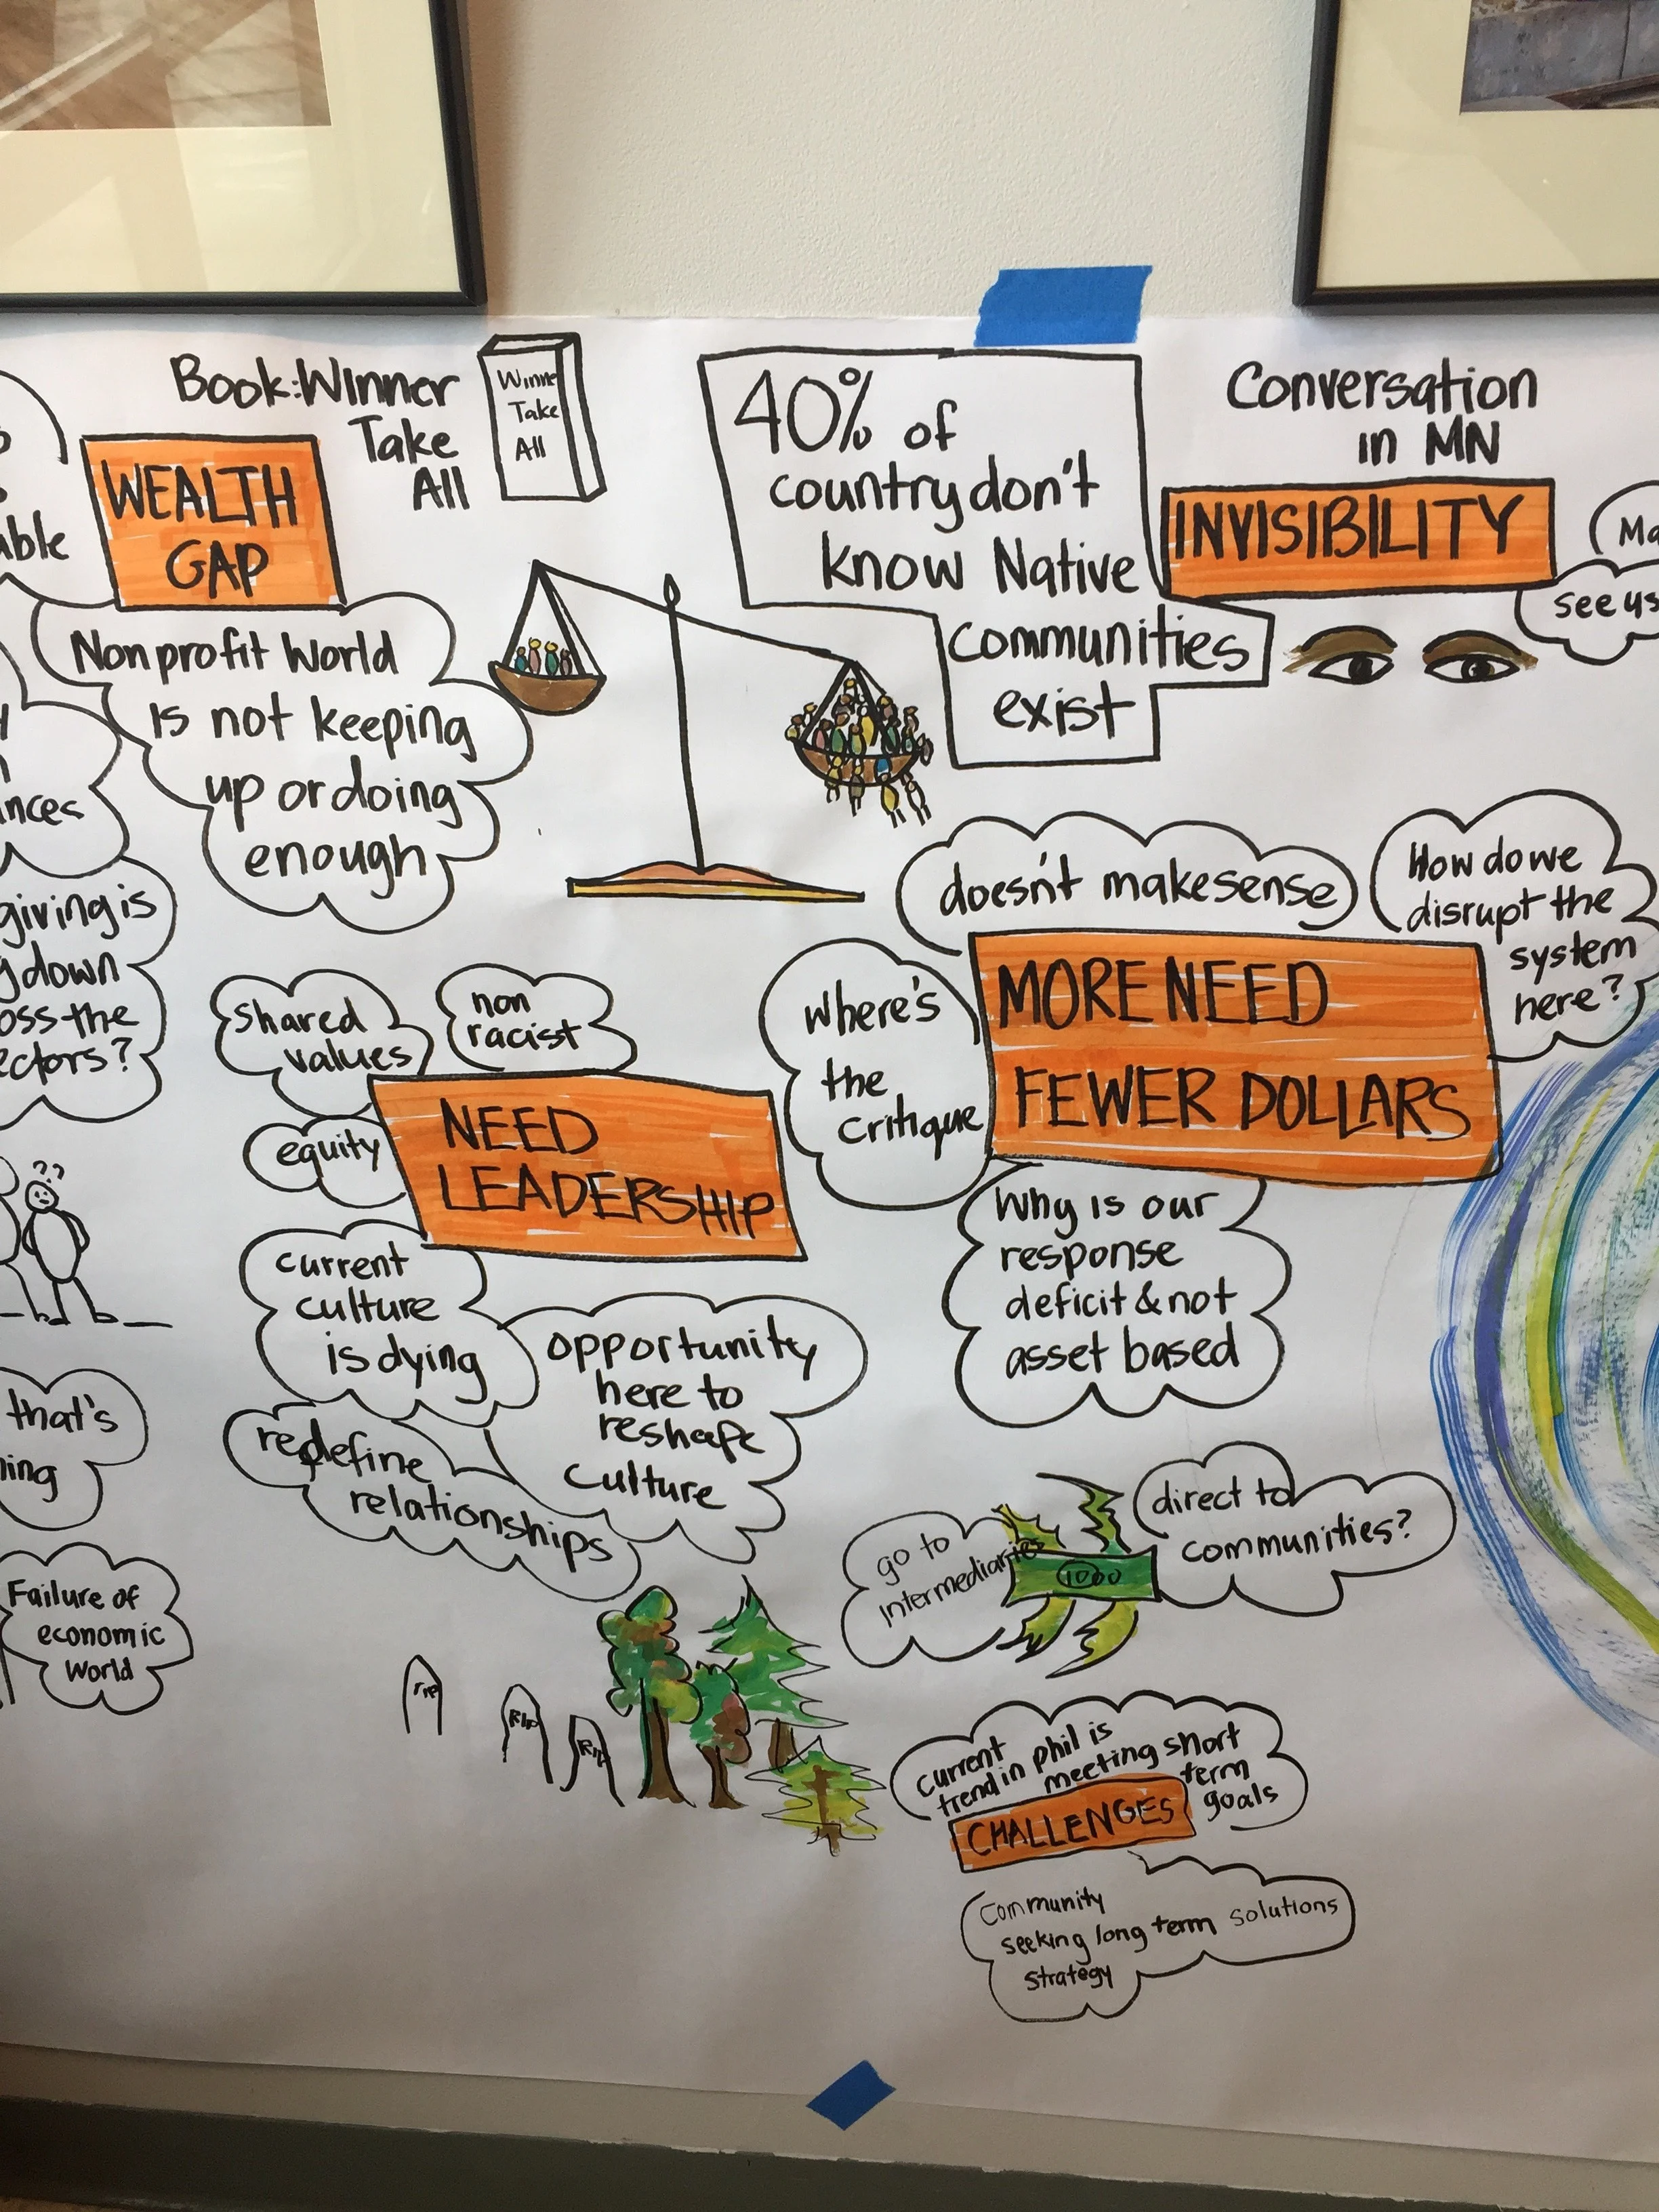 Book: Winner
Take
All
Winne
Take
All
WEALTH
GAP
able
Nonprofit World
is not keeping
up or doing
enough
40% of
country don't
know Native
communities
exist
Conversation
in MN
INVISIBILITY
see us
giving is
down
oss the
ectors?
shared
values
non
racist
equity
NEED
LEADERSHIP
current
culture
is dying
opportunity
here to
reshape
culture
redefine
relationships
that's
ning
Failure of
economic
World
rip
RIP
RIP
doesn't make sense
How do we
disrupt the
system
here?
where's
the
critique
MORE NEED
FEWER DOLLARS
Why is our
response
deficit & not
asset based
go to
intermediaries
1000
direct to
communities?
current
trend in phil is
meeting short
term
goals
CHALLENGES
Community
seeking long term solutions
strategy